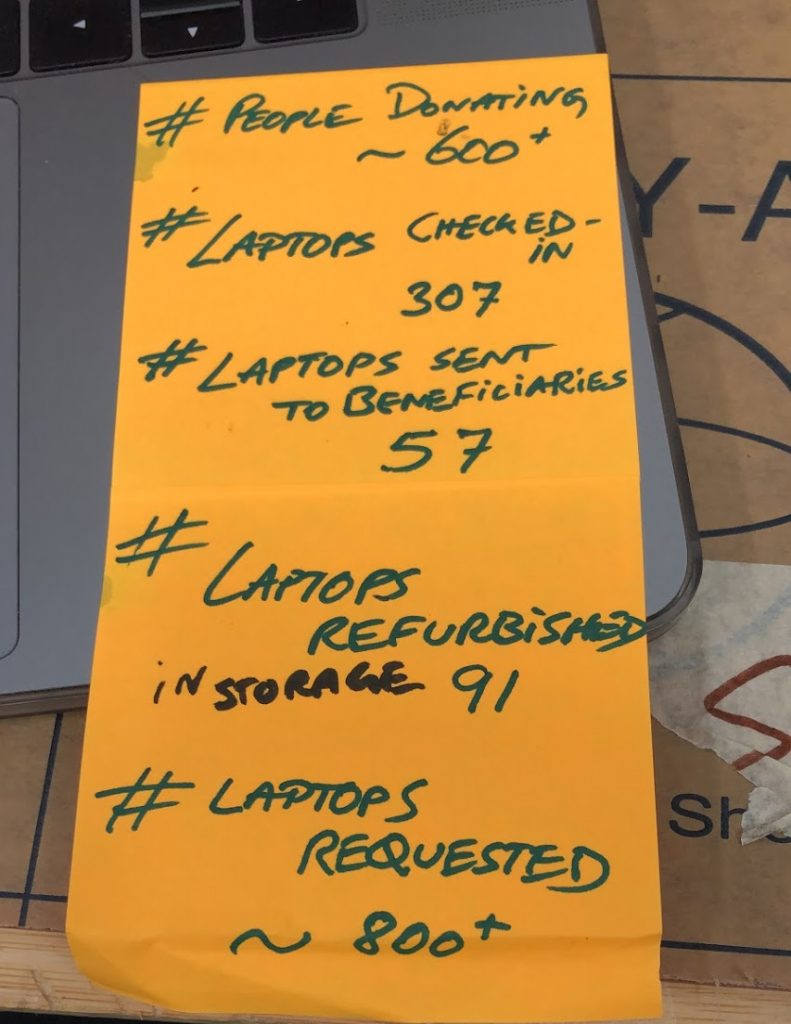 # PEOPLE DONATING
~ 600+
# LAPTOPS CHECKED-
IN
307
# LAPTOPS SENT
TO BENEFICIARIES
57
# LAPTOPS
REFURBISHED
IN STORAGE 91
# LAPTOPS
REQUESTED
~ 800+
Y-A
Sh